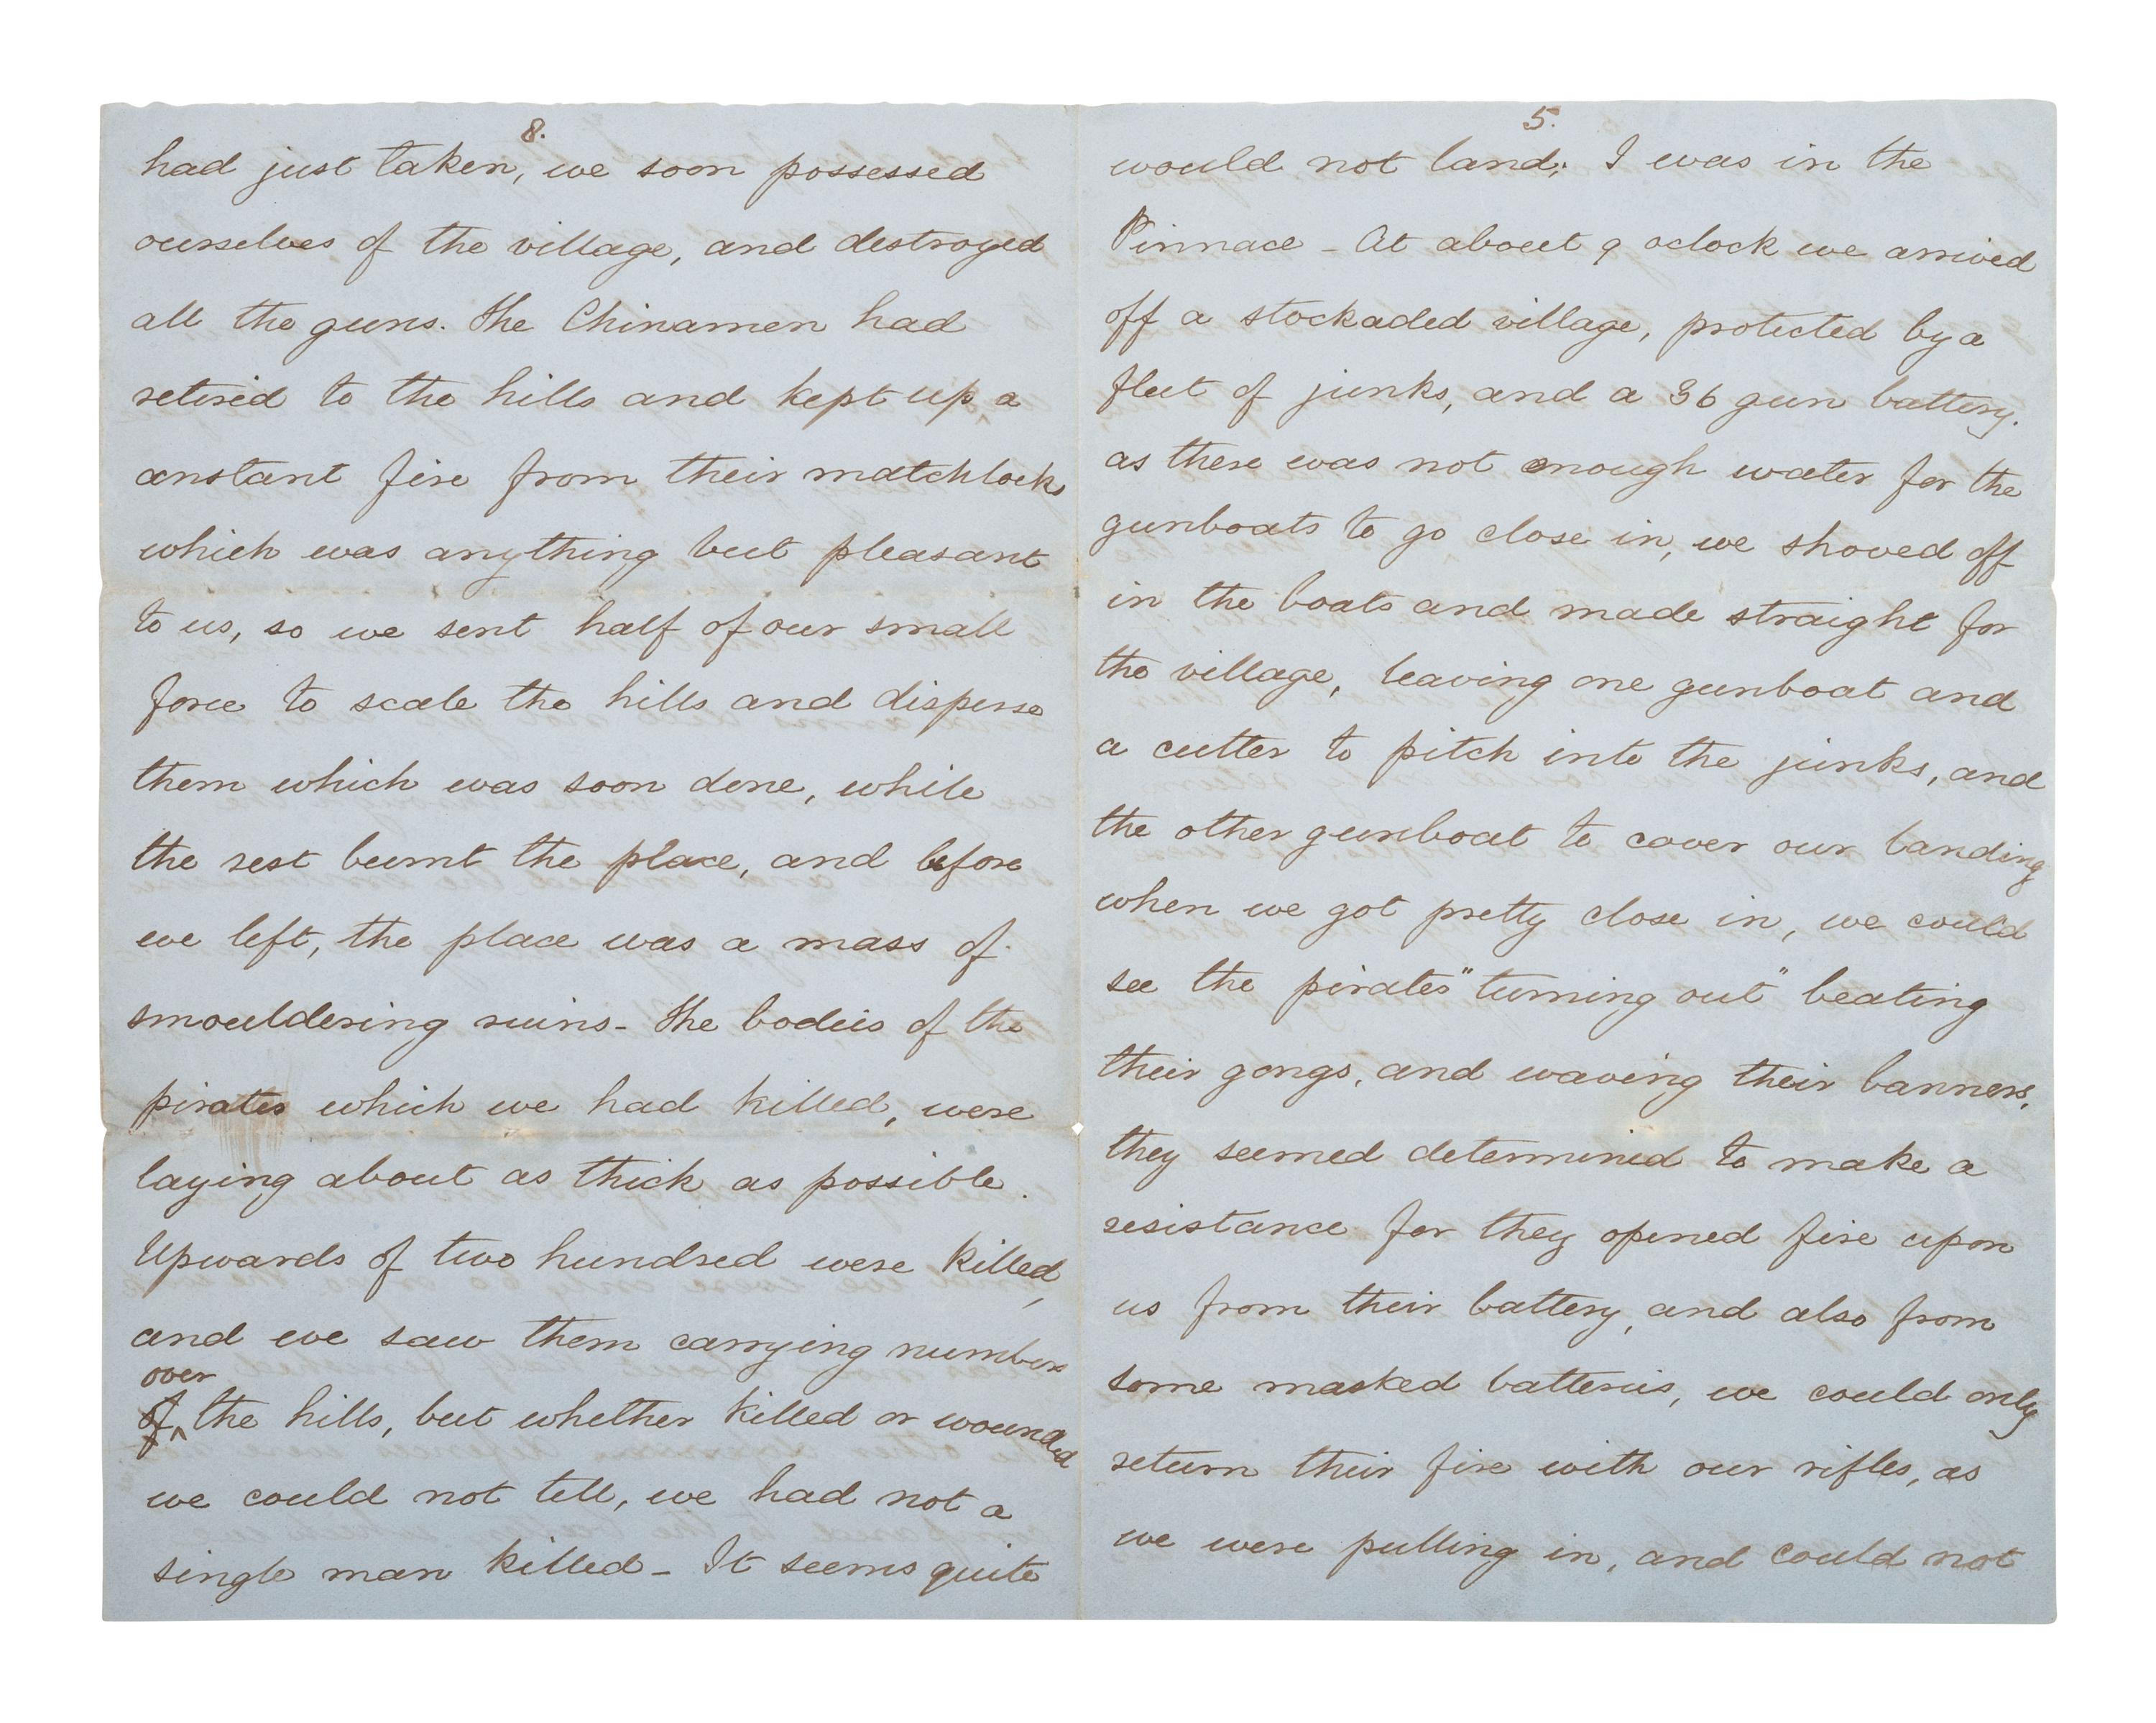 8.
had just taken, we soon possessed
ourselves of the village, and destroyed
all the guns. The Chinamen had
retired to the hills and kept up a
constant fire from their matchlocks
which was anything but pleasant
to us, so we sent half of our small
force to scale the hills and disperse
them which was soon done, while
the rest burnt the place, and before
we left, the place was a mass of
smouldering ruins - The bodies of the
pirates which we had killed, were
laying about as thick as possible.
Upwards of two hundred were killed,
and we saw them carrying numbers
over
of the hills, but whether killed or wounded
we could not tell, we had not a
single man killed - It seems quite
5.
would not land; I was in the
Pinnace - At about 9 oclock we arrived
off a stockaded village, protected by a
fleet of junks, and a 36 gun battery.
as there was not enough water for the
gunboats to go close in, we shoved off
in the boats and made straight for
the village, leaving one gunboat and
a cutter to pitch into the junks, and
the other gunboat to cover our landing
when we got pretty close in, we could
see the pirates "turning out" beating
their gongs, and waving their banners,
they seemed determined to make a
resistance for they opened fire upon
us from their battery, and also from
some masked batteries, we could only
return their fire with our rifles, as
we were pulling in, and could not